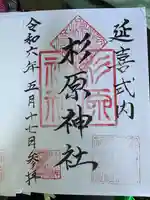 延喜式内
杉原神社
令和六年五月十七日参拝